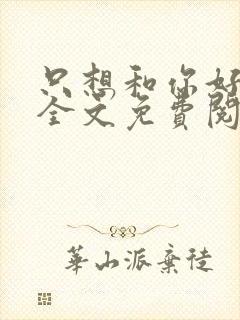 只想和你好
全文免費閱
華山派棄徒